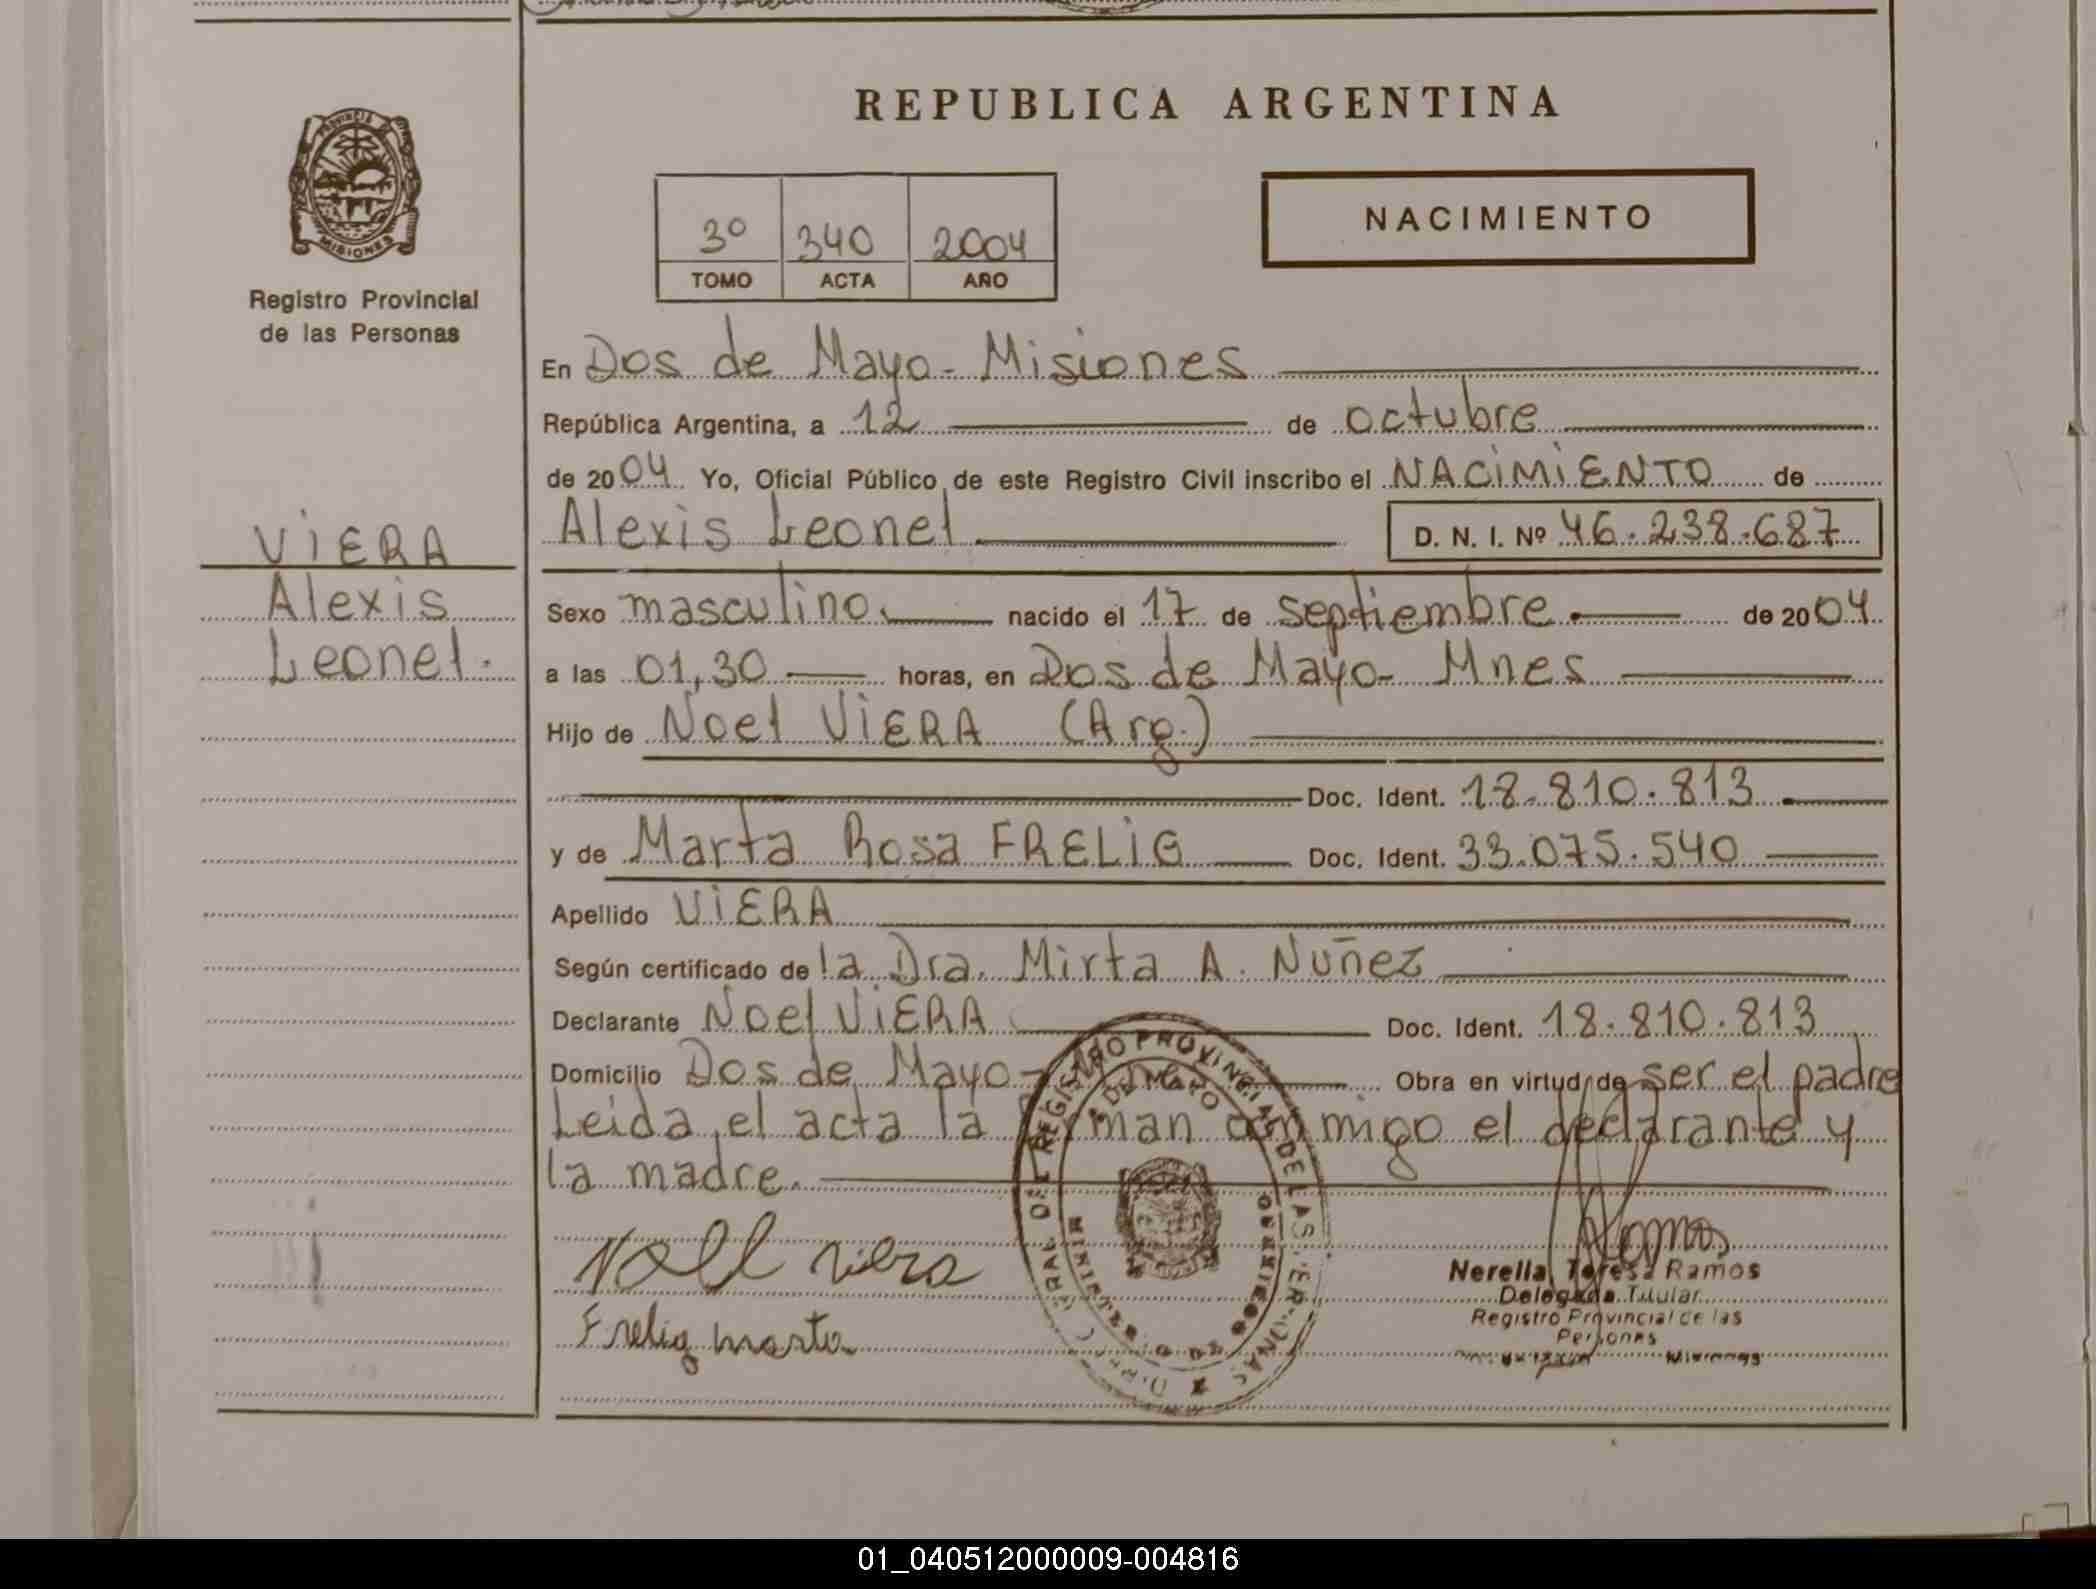 REPUBLICA ARGENTINA
PROVINCIA DE
MISIONES
Registro Provincial
de las Personas
3º 340 2004
TOMO ACTA AÑO
NACIMIENTO
VIERA
Alexis
Leonel.
En Dos de Mayo - Misiones
República Argentina, a 12 de octubre
de 2004 Yo, Oficial Público de este Registro Civil inscribo el NACIMIENTO de
Alexis Leonel D. N. I. Nº 46.238.687
Sexo masculino. nacido el 17 de septiembre. de 2004
a las 01,30 horas, en Dos de Mayo - Mnes
Hijo de Noel VIERA (Arg.)
Doc. Ident. 18.810.813.
y de Marta Rosa FRELIG Doc. Ident. 33.075.540
Apellido VIERA
Según certificado de la Dra. Mirta A. Nuñez
Declarante Noel VIERA Doc. Ident. 18.810.813
Domicilio Dos de Mayo - Obra en virtud de ser el padre
Leida el acta la firman conmigo el declarante y
la madre.
Noel viera
Frelig marta
REGISTRO PROVINCIAL DE LAS PERSONAS
DE MAYO
Nerella Teresa Ramos
Delegada Titular
Registro Provincial de las
Personas
Misiones
01_040512000009-004816